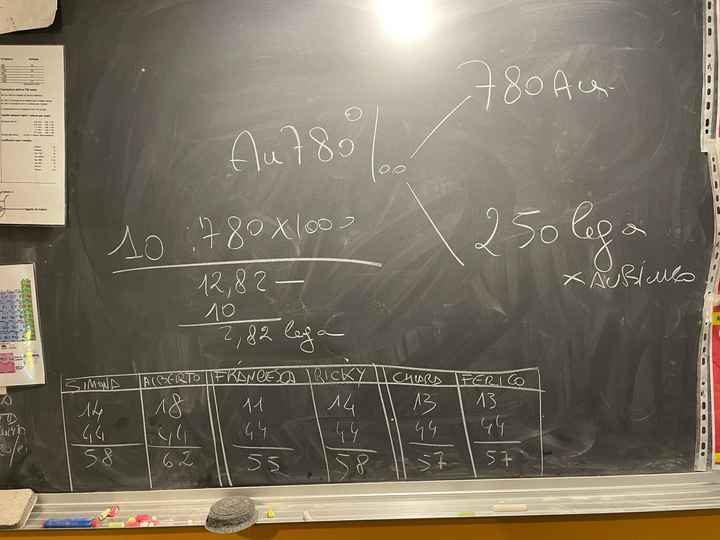 780 Au
Au 780 ‰
250 lega
x Au Bianco
10 : 780 x 1000
12,82 —
10
2,82 lega
SIMONA ALBERTO FRANCESCA RICKY CHIARA FERICO
14 18 11 14 13 13
44 44 44 44 44 44
58 62 55 58 57 57